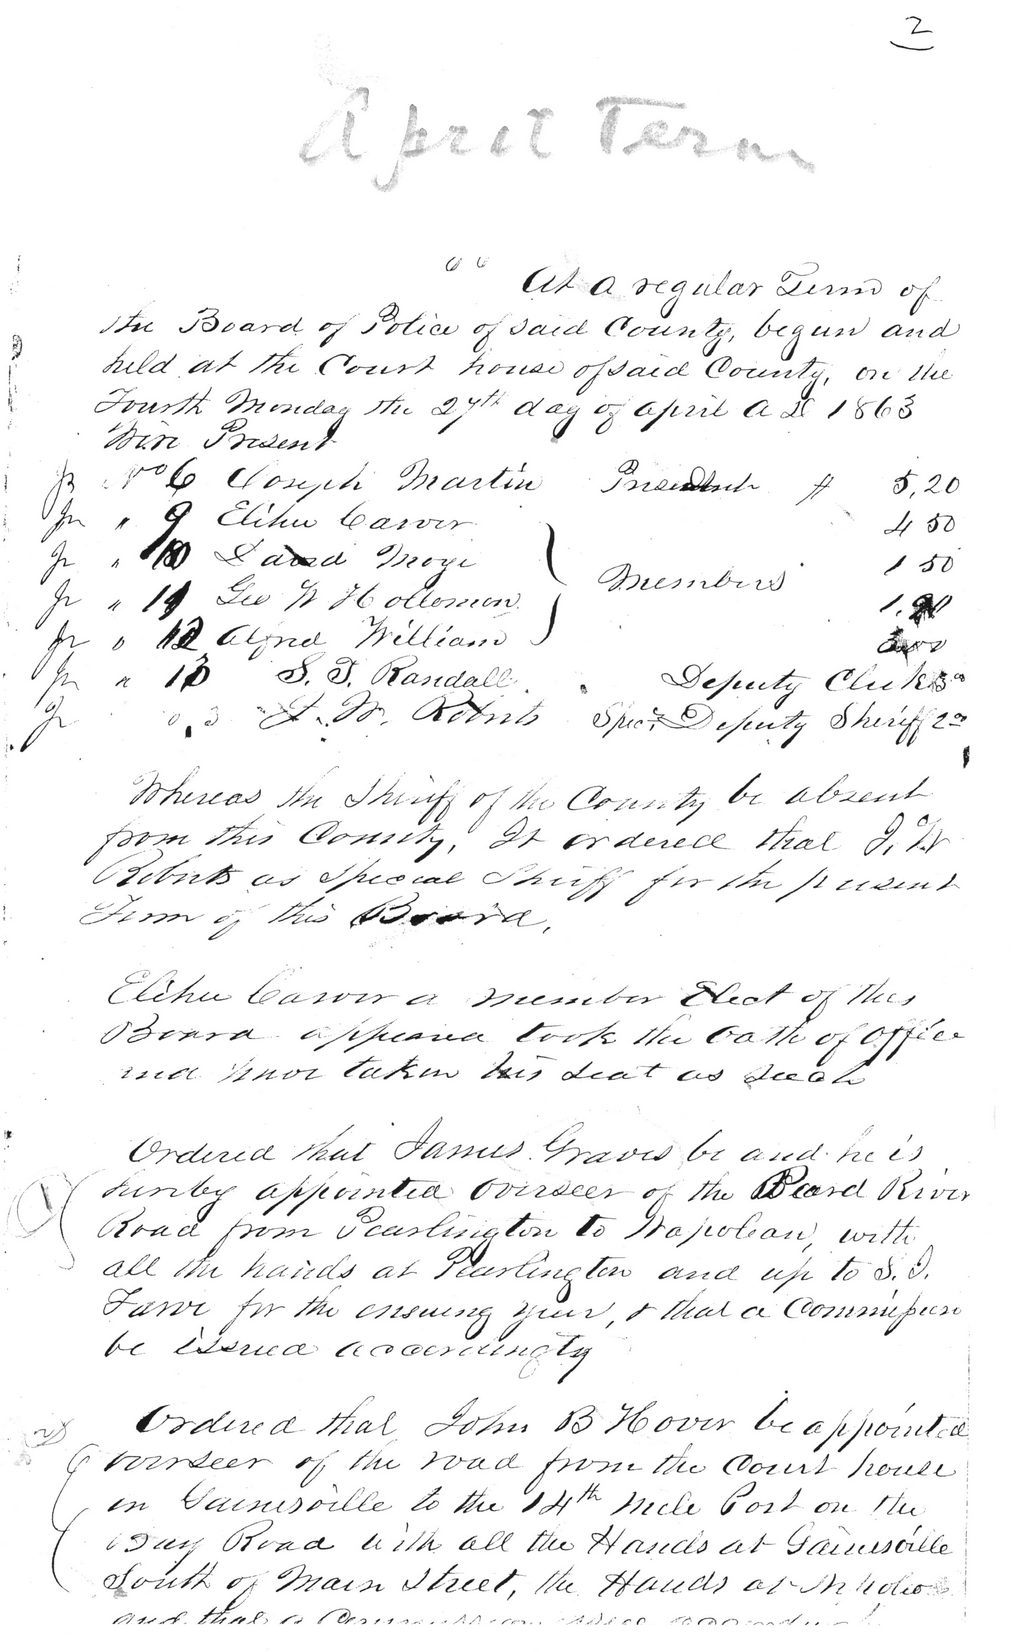 2
April Term
" At a regular Term of
the Board of Police of said County, begun and
held at the Court house of said County, on the
Fourth Monday the 27th day of April A D 1863
Were Present
Jr No 6 Joseph Martin President $ 5,20
Jr " 9 Elihu Carver 4 50
Jr " 10 David Moye 1 50
Members
Jr " 11 Geo W Holleman 1.
Jr " 12 Alfred William
Jr " 13 S. T. Randall Deputy Clerk 3
Jr J. W. Roberts Spec'l Deputy Sheriff 2
Whereas the Sheriff of the County be absent
from this County, It ordered that J. W
Roberts as Special Sheriff for the present
Term of this Board.
Elihu Carver a member Elect of this
Board appeared took the Oath of Office
and have taken his seat as such
Ordered that James Graves be and he is
hereby appointed Overseer of the Pearl River
Road from Pearlington to Napolean, with
all the hands at Pearlington and up to S. J.
Favre for the ensuing year, & that a Commission
be issued accordingly
2 Ordered that John B Hover be appointed
overseer of the road from the Court house
in Gainesville to the 14th Mile Post on the
Bay Road with all the Hands at Gainesville
South of Main Street, the Hands at
and that a Commission